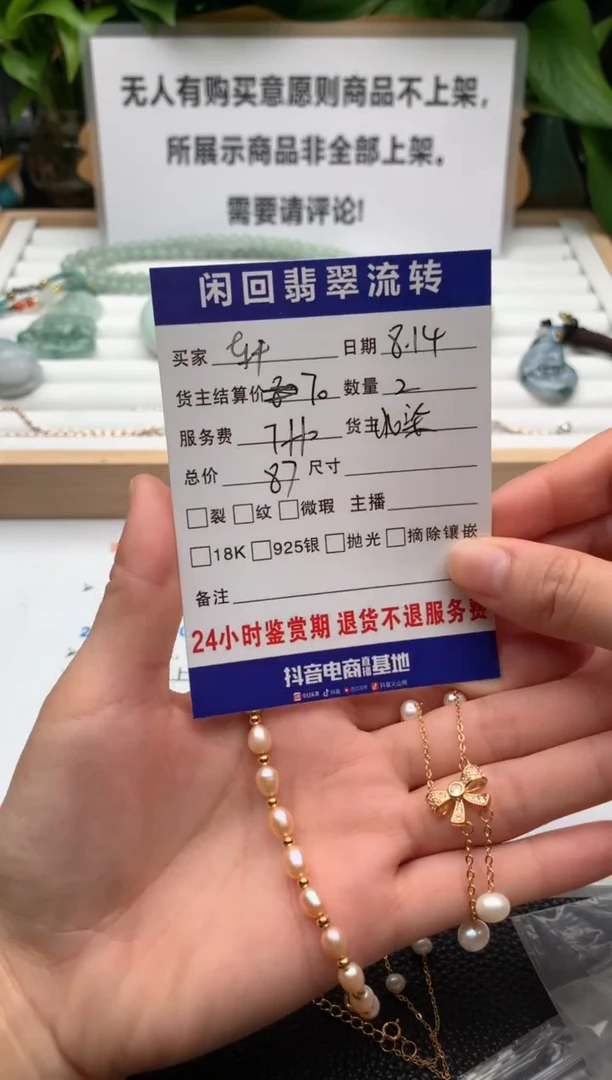 无人有购买意愿则商品不上架,
所展示商品非全部上架。
需要请评论!
闲回翡翠流转
买家 日期 8.14
货主结算价 70 数量 2
服务费 货主
总价 87 尺寸
裂 纹 微瑕 主播
18K 925银 抛光 摘除镶嵌
备注
24小时鉴赏期 退货不退服务费
抖音电商直播基地